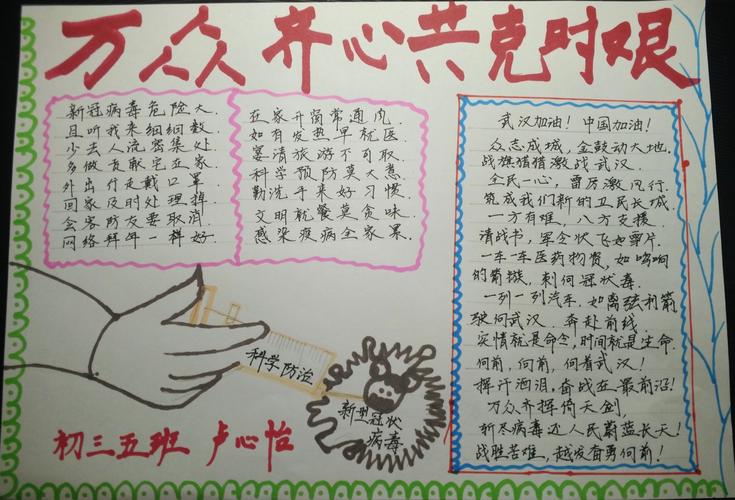 万众齐心共克时艰
新冠病毒危险大.
且听我来细细数.
少去人流密集处
多做贡献宅在家
外出行走戴口罩.
回家及时处理掉.
会客防友要取消
网络拜年一样好.
在家开窗常通风.
如有发热早就医.
宴请旅游不可取.
科学预防莫大意.
勤洗手来好习惯.
文明就餐莫贪味.
感染疫病全家累.
武汉加油！中国加油！
众志成城，金鼓动大地.
战旗猎猎激战武汉.
全民一心，雷厉激风行.
筑成我们新的卫民长城.
一方有难，八方支援.
请战书，军令状飞如雪片.
一车一车医药物资，如嗡响
的箭镞，刺向冠状毒.
一列一列汽车.如离弦利箭
驶向武汉.奔赴前线.
灾情就是命令，时间就是生命.
向前，向前，向着武汉！
挥汗洒泪，奋战在最前沿！
万众齐挥倚天剑，
斩尽病毒还人民蔚蓝长天！
战胜苦难，越发奋勇向前！
科学防治
新型冠状
病毒
初三五班 卢心怡